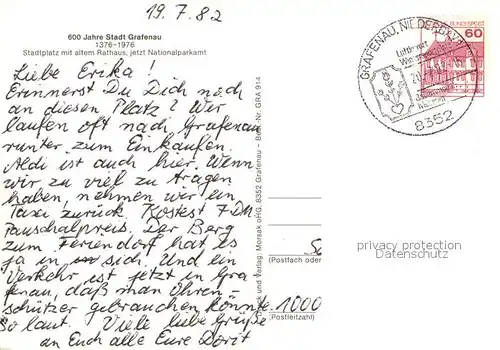 19.7.82
600 Jahre Stadt Grafenau
1376-1976
Stadtplatz mit altem Rathaus, jetzt Nationalparkamt
Liebe Erika!
Erinnerst Du Dich noch
an diesen Platz? Wir
laufen oft nach Grafenau
runter zum Einkaufen.
Aldi ist auch hier. Wenn
wir zu viel zu tragen
haben, nehmen wir ein
Taxi zurück. Kostest 7 DM
Pauschalpreis. Der Berg
zum Feriendorf hat es
ja in sich. Und ein
Verkehr ist jetzt in Gra
fenau, daß man Ohren-
schützer gebrauchen könnte.
So laut. Viele liebe Grüße
an Euch alle Eure Dorit
und Verlag: Morsak oHG, 8352 Grafenau - Best. Nr. GRA 914
GRAFENAU, NIEDERBAY
8352
BUNDESPOST
60
(Postfach oder
1000
(Postleitzahl)
privacy protection
Datenschutz